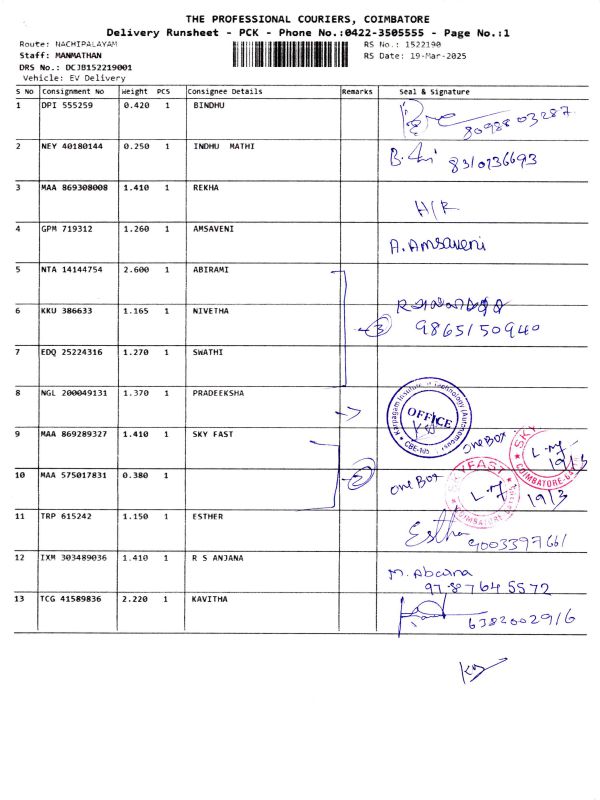 THE PROFESSIONAL COURIERS, COIMBATORE
Delivery Runsheet - PCK - Phone No.:0422-3505555 - Page No.:1
Route: NACHIPALAYAM RS No.: 1522190
Staff: MANMATHAN RS Date: 19-Mar-2025
DRS No.: DCJB152219001
Vehicle: EV Delivery
S No Consignment No Weight PCS Consignee Details Remarks Seal & Signature
1 DPI 555259 0.420 1 BINDHU
8098803287
2 NEY 40180144 0.250 1 INDHU MATHI
8310736693
3 MAA 869308008 1.410 1 REKHA
H/R
4 GPM 719312 1.260 1 AMSAVENI
A. Amsaveni
5 NTA 14144754 2.600 1 ABIRAMI
6 KKU 386633 1.165 1 NIVETHA
3 9865150940
7 EDQ 25224316 1.270 1 SWATHI
8 NGL 200049131 1.370 1 PRADEEKSHA
Karpagam Institute of Technology (Autonomous)
OFFICE
CBE-105
9 MAA 869289327 1.410 1 SKY FAST
one Box
SKY
COIMBATORE
19/3
10 MAA 575017831 0.380 1
2 one Box
SKYFAST
COIMBATORE
19/3
11 TRP 615242 1.150 1 ESTHER
Esther
9003397661
12 IXM 303489036 1.410 1 R S ANJANA
9787645572
13 TCG 41589836 2.220 1 KAVITHA
6382002916